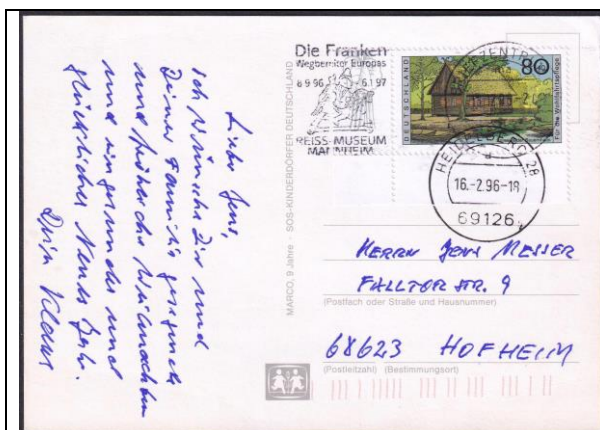 Lieber Jens,
ich wünsche Dir und
Deiner Familie gesegnete
und fröhliche Weihnachten
und ein gesundes und
glückliches Neues Jahr.
Dein Klaus
MARCO, 9 Jahre - SOS-KINDERDÖRFER DEUTSCHLAND
Die Franken
Wegbereiter Europas
8 9 96 - 6.1 97
REISS-MUSEUM
MANNHEIM
DEUTSCHLAND
80
Für die Wohlfahrtspflege
BRIEFZENTRUM
HEIDELBERG
16.-2.96-18
69126
HERRN JENS MESSER
FALLTORSTR. 9
(Postfach oder Straße und Hausnummer)
68623 HOFHEIM
(Postleitzahl) (Bestimmungsort)